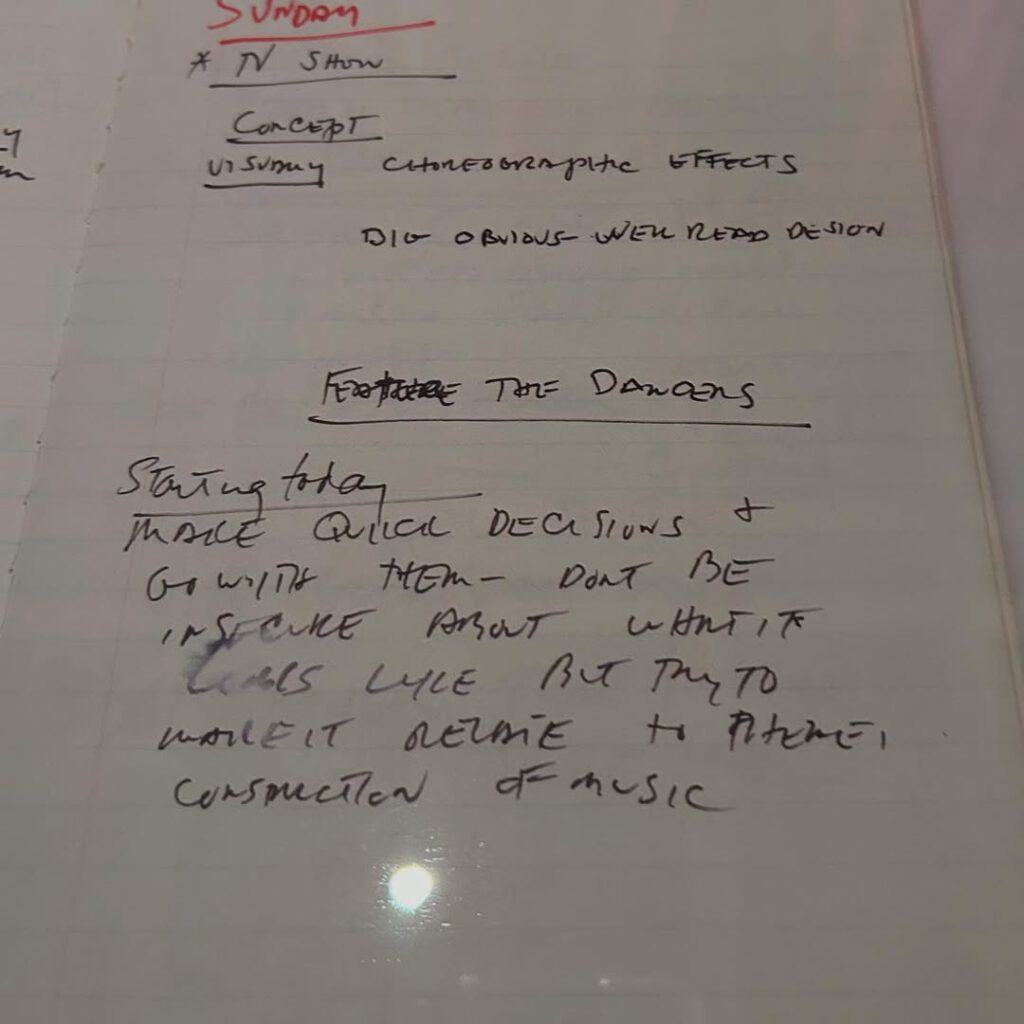 SUNDAY
* TV SHOW
CONCEPT
VISUALLY CHOREOGRAPHIC EFFECTS
BIG OBVIOUS - WELL READ DESIGN
FEATURE THE DANCERS
Starting today
MAKE QUICK DECISIONS +
GO WITH THEM - DONT BE
INSECURE ABOUT WHAT IT
LOOKS LIKE BUT TRY TO
MAKE IT RELATE to THEME,
CONSTRUCTION OF MUSIC